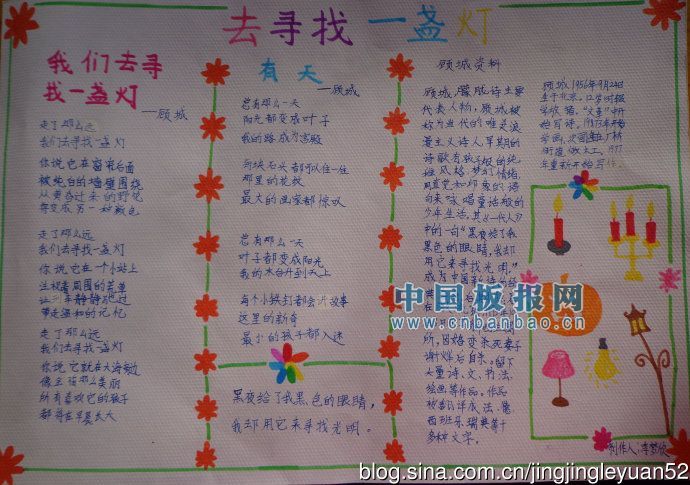 去寻找一盏灯
我们去寻
找一盏灯
——顾城
走了那么远
我们去寻找一盏灯
你说它在窗帘后面
被纯白的墙壁围绕
从黄昏过来的野花
将变成另一种颜色
走了那么远
我们去寻找一盏灯
你说它在一个小站上
注视着周围的荒草
让列车静静驶过
带走温和的记忆
走了那么远
我们去寻找一盏灯
你说它就在大海旁边
像金桔那么美丽
所有喜欢它的孩子
都将在早晨长大
有天
——顾城
总有那么一天
阳光都变成叶子
我的路成为宫殿
每块石头都可以住一生
那里的花纹
最大的画家都惊叹
总有那么一天
叶子都变成阳光
我的木台升到天上
每个小锁钉都会讲故事
这里的新奇
最小的孩子都入迷
黑夜给了我黑色的眼睛，
我却用它来寻找光明。
顾城资料
顾城，朦胧诗主要
代表人物，顾城被
称为当代的唯灵浪
漫主义诗人，早期的
诗歌有孩子般的纯
稚风格、梦幻情绪，
用直觉和印象的诗
句来咏唱童话般的
少年生活。其《一代人》
中的一句"黑夜给了我
黑色的眼睛，我却
用它来寻找光明"
成为中国新诗的经
所，因婚变杀死妻子
谢烨后自杀。留下
大量诗、文、书法、
绘画等作品。作品
被译成英、法、德、
西班牙、瑞典等十
多种文字。
顾城，1956年9月24日
生于北京，
开
始写诗。
年重新开始写作。
制作人：李梦欣
中国板报网
www.cnbanbao.cn
blog.sina.com.cn/jingjingleyuan52